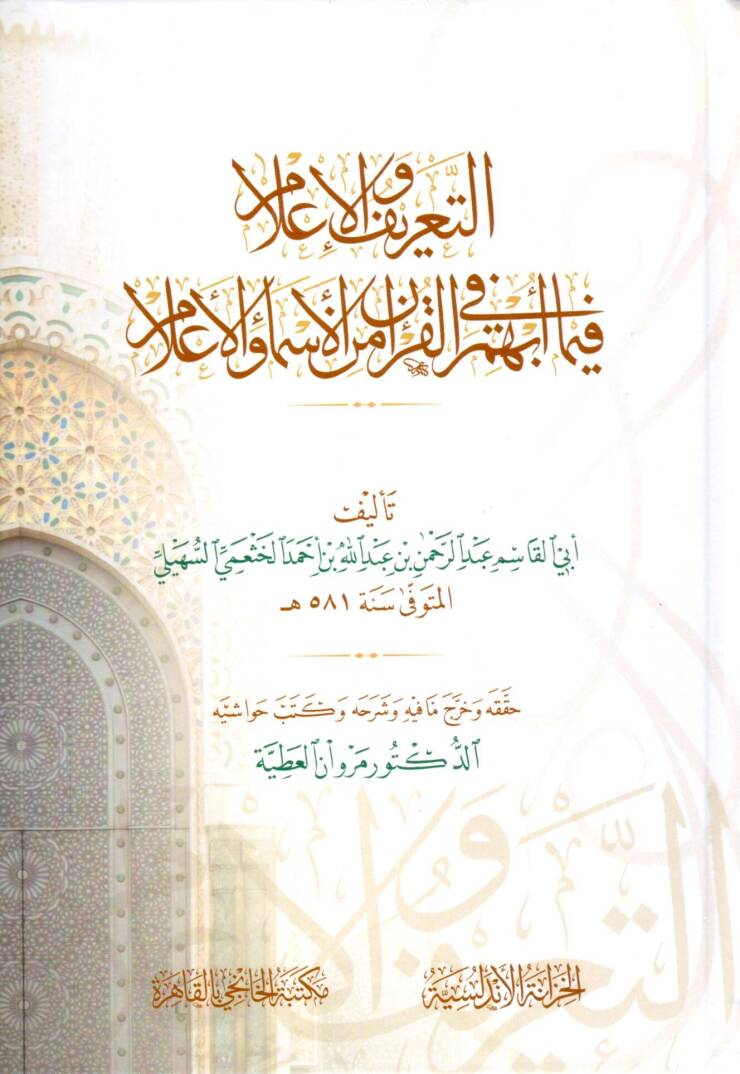 التَّعريف والإعلام
فيما أُبهم في القرآن من الأسماء والأعلام
تأليف
أبي القاسم عبد الرحمن بن عبد الله بن أحمد الخثعمي السهيلي
المتوفى سنة ٥٨١ هـ
حققه وخرج ما فيه وشرحه وكتب حواشيه
الدكتور مروان العطية
الخزانة الأندلسية
مكتبة الخانجي بالقاهرة